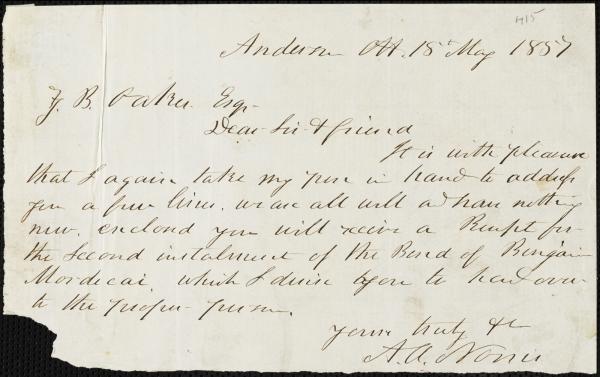 415
Anderson Off. 18th May 1857
Z. B. Oakes Esqr
Dear Sir & friend
It is with pleasure
that I again take my pen in hand to address
you a few lines. we are all well & have nothing
new. enclosed you will receive a Receipt for
the second instalment of the Bond of Benjain
Mordecai, which I desire you to hand over
to the proper person.
Yours truly &c
A. A. Norris